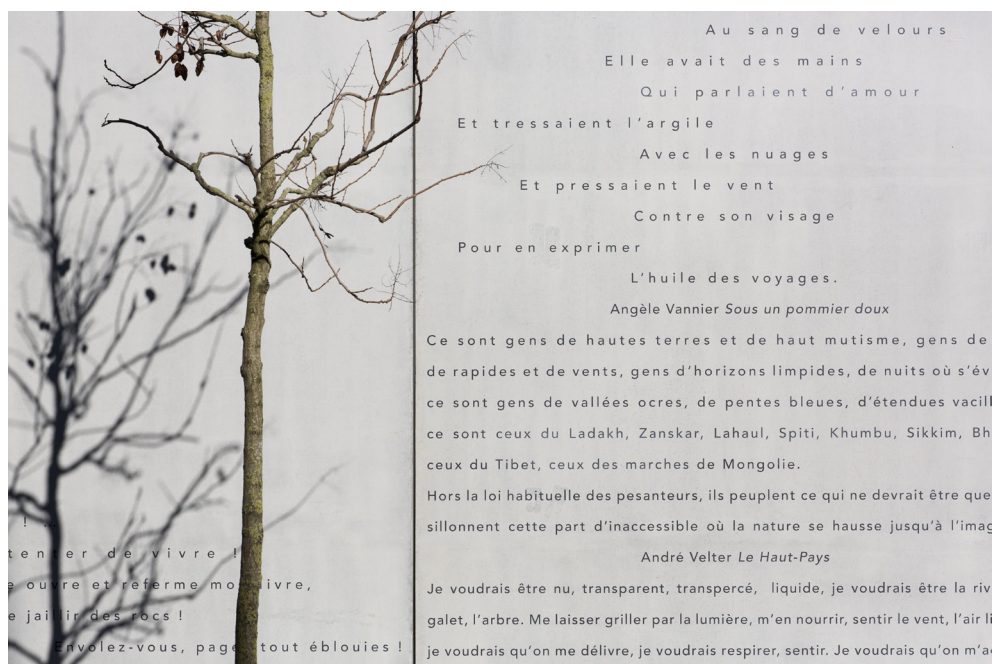 ! ..
tenter de vivre !
e ouvre et referme mon livre,
e jaillir des rocs !
Envolez-vous, pages tout éblouies !
Au sang de velours
Elle avait des mains
Qui parlaient d'amour
Et tressaient l'argile
Avec les nuages
Et pressaient le vent
Contre son visage
Pour en exprimer
L'huile des voyages.
Angèle Vannier Sous un pommier doux
Ce sont gens de hautes terres et de haut mutisme, gens de
de rapides et de vents, gens d'horizons limpides, de nuits où s'év
ce sont gens de vallées ocres, de pentes bleues, d'étendues vacill
ce sont ceux du Ladakh, Zanskar, Lahaul, Spiti, Khumbu, Sikkim, Bh
ceux du Tibet, ceux des marches de Mongolie.
Hors la loi habituelle des pesanteurs, ils peuplent ce qui ne devrait être que
sillonnent cette part d'inaccessible où la nature se hausse jusqu'à l'imag
André Velter Le Haut-Pays
Je voudrais être nu, transparent, transpercé, liquide, je voudrais être la riv
galet, l'arbre. Me laisser griller par la lumière, m'en nourrir, sentir le vent, l'air li
je voudrais qu'on me délivre, je voudrais respirer, sentir. Je voudrais qu'on m'a